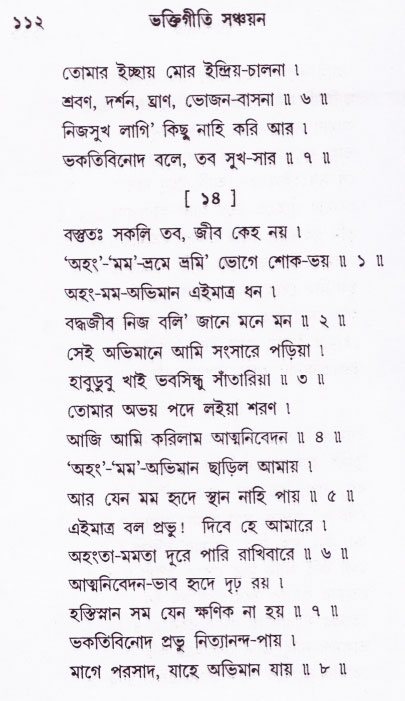 ১১২ ভক্তিগীতি সঞ্চয়ন
তোমার ইচ্ছায় মোর ইন্দ্রিয়-চালনা ।
শ্রবণ, দর্শন, ঘ্রাণ, ভোজন-বাসনা ॥ ৬ ॥
নিজসুখ লাগি’ কিছু নাহি করি আর ।
ভকতিবিনোদ বলে, তব সুখ-সার ॥ ৭ ॥
[ ১৪ ]
বস্তুতঃ সকলি তব, জীব কেহ নয় ।
‘অহং’-‘মম’-ভ্রমে ভ্রমি’ ভোগে শোক-ভয় ॥ ১ ॥
অহং-মম-অভিমান এইমাত্র ধন ।
বদ্ধজীব নিজ বলি’ জানে মনে মন ॥ ২ ॥
সেই অভিমানে আমি সংসারে পড়িয়া ।
হাবুডুবু খাই ভবসিন্ধু সাঁতারিয়া ॥ ৩ ॥
তোমার অভয় পদে লইয়া শরণ ।
আজি আমি করিলাম আত্মনিবেদন ॥ ৪ ॥
‘অহং’-‘মম’-অভিমান ছাড়িল আমায় ।
আর যেন মম হৃদে স্থান নাহি পায় ॥ ৫ ॥
এইমাত্র বল প্রভু! দিবে হে আমারে ।
অহংতা-মমতা দূরে পারি রাখিবারে ॥ ৬ ॥
আত্মনিবেদন-ভাব হৃদে দৃঢ় রয় ।
হস্তিস্নান সম যেন ক্ষণিক না হয় ॥ ৭ ॥
ভকতিবিনোদ প্রভু নিত্যানন্দ-পায় ।
মাগে পরসাদ, যাহে অভিমান যায় ॥ ৮ ॥